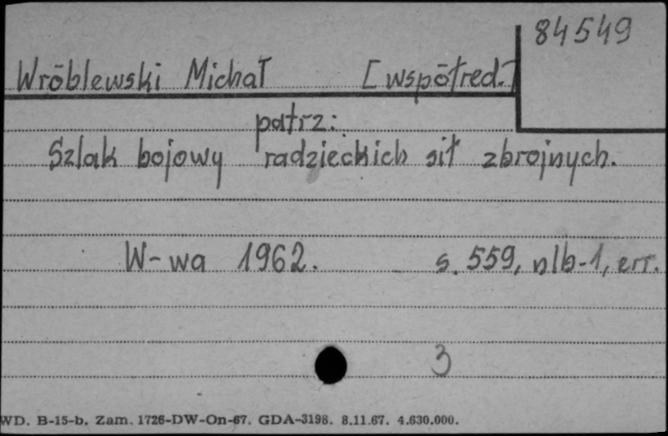 84549
Wróblewski Michał [współred.]
patrz:
Szlak bojowy radzieckich sił zbrojnych.
W-wa 1962. s. 559, nlb-1, err.
3
WD. B-15-b. Zam. 1726-DW-On-67. GDA-3198. 8.11.67. 4.630.000.